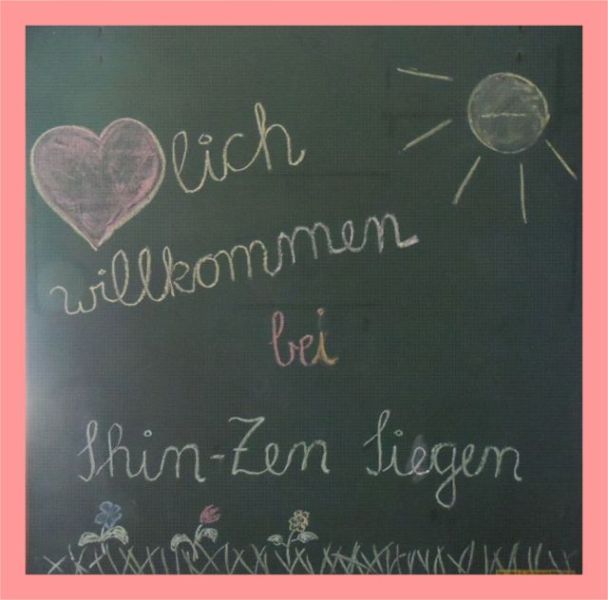 lich
willkommen
bei
Shin-Zen Siegen